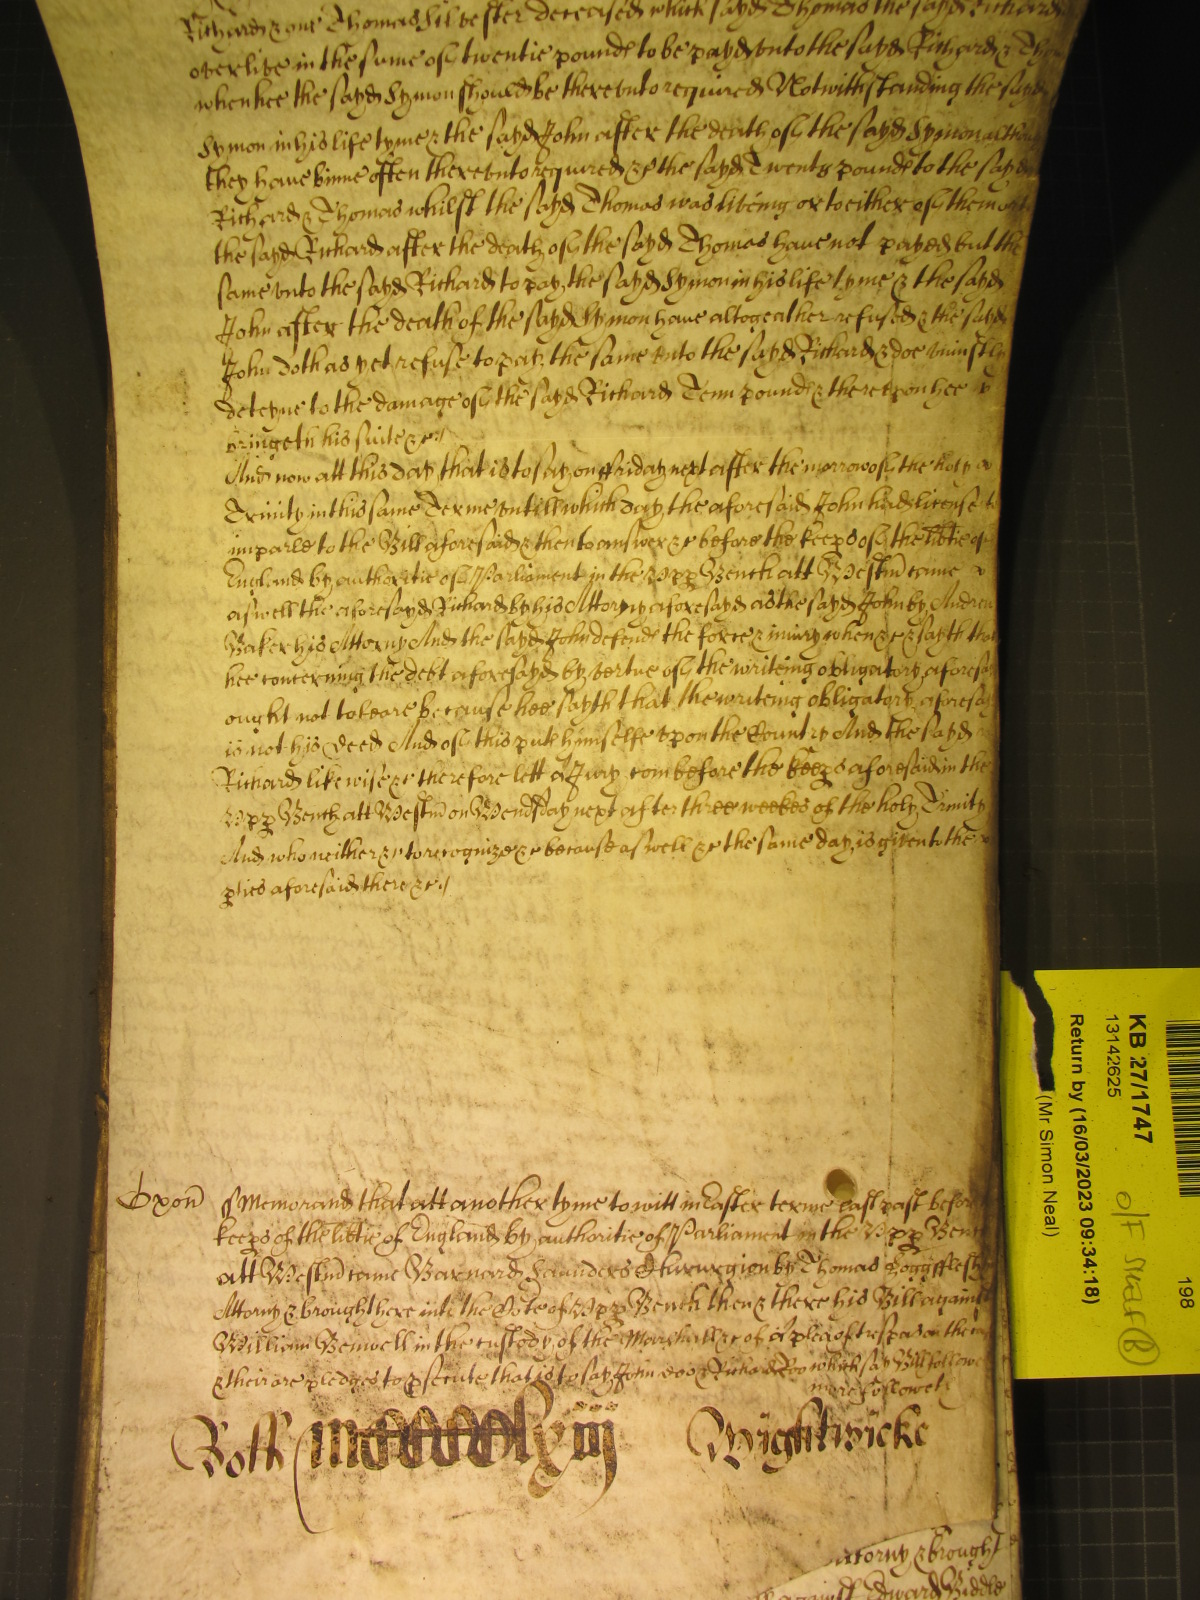 Richard & one Thomas Silvester deceased which sayd Thomas the sayd Richard
overlive in the same of twentie pound to be payd unto the sayd Richard & Tho
when hee the sayd Symon should be thereunto required Notwithstanding the sayd
Symon in his life tyme & the sayd John after the death of the sayd Symon altho
they have binne often thereunto required &c the sayd Twenty pound to the sayd
Richard & Thomas whilst the sayd Thomas was liveing or to either of them
the sayd Richard after the death of the sayd Thomas have not payed but the
same unto the sayd Richard to pay the sayd Symon in his life tyme & the sayd
John after the death of the sayd Symon have altogeather refused & the sayd
John doth as yet refuse to pay the same unto the sayd Richard & doe uniustly
deteyne to the damage of the sayd Richard Tenn pound & thereupon hee
bringeth his suite &c
And now att this day that is to say on ffriday next after the morrow of the holy
Trinity in this same Terme untill which day the aforesaid John had license to
imparle to the Bill aforesaid & then to answer &c before the keeps of the libtie of
England by authoritie of Parliament in the Upp Bench att Westm came
aswell the aforesayd Richard by his Attorny aforesayd as the sayd John by Andrew
Baker his Attorny And the sayd John defend the force & iniury when &c & sayth that
hee concerning the debt aforesayd by vertue of the writeing obligatory aforesay
ought not to bee because hee sayth that the writeing obligatory aforesay
is not his deed And of this putt himselfe upon the Country And the sayd
Richard likewise &c therefore lett a Jury com before the keeps aforesaid in the
Upp Bench att Westm on Wendsday next after three weekes of the holy Trinity
And who neither &c to recognize &c because aswell &c the same day is given to the
pties aforesaid there &c
Oxon Memorand that att another tyme to witt in Easter terme last past before
keeps of the libtie of England by authoritie of Parliament in the Upp Bench
att Westm came Barnard Saunders Chirurgion by Thomas
Attorny & brought here into the Cote of Upp Bench then & there his Bill against
William Benwell in the custody of the Marshall &c of a plea of trespas on the
& their are pledges to psecute that is to say John doo & Richard Roo which say Bill followe
more followeth
Rott Wightwicke
Attorny & brought
against Edward Biddle
KB 27/1747
13142625
Return by (16/03/2023 09:34:18)
(Mr Simon Neal)
198
O/F Staff (B)